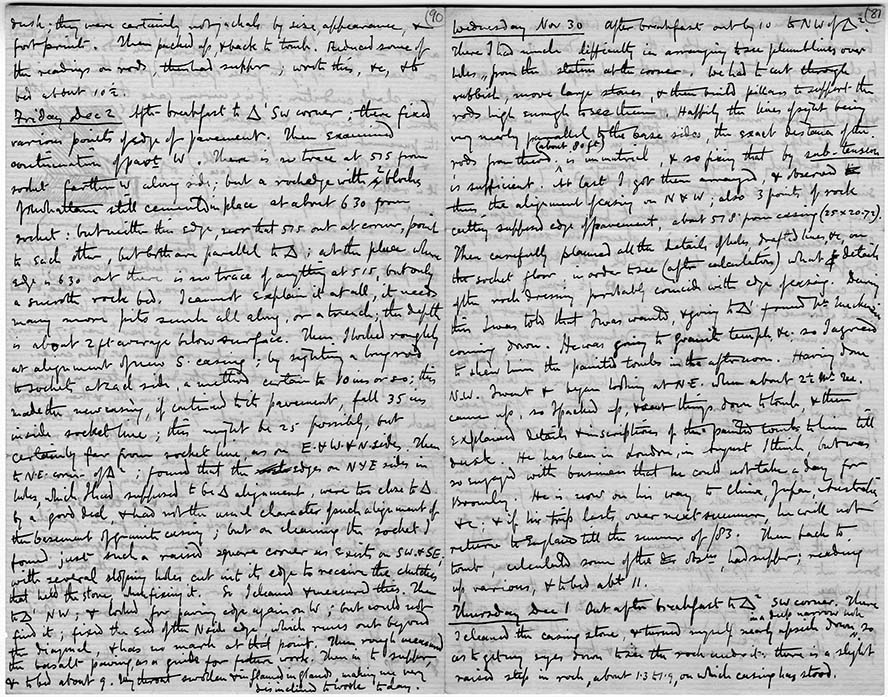 90
dusk; they were certainly not jackals by size, appearance, &
foot prints. Then picked up & back to tomb. Reduced some of
the readings on rods, had supper; wrote this, &c, & to
bed about 10½.
Friday Dec 2 After breakfast to Δ¹ SW corner; there fixed
various points of edge of pavement. Then examined
continuation of pavt W. There is no trace at 515 from
socket farther W along side; but a rock edge with 2 blocks
still cemented in place at about 630 from
socket: but neither this edge, nor that 515 out at corner, point
to each other, but both are parallel to Δ; at the place where
edge is 630 out there is no trace of anything at 515, but only
a smooth rock bed. I cannot explain it at all, it needs
many more pits sunk all along, or a trench; the depth
is about 2 ft average below surface. Then I looked roughly
at alignment of new S. casing; by sighting a long rod
to sockets at each side, a method certain to 10 ins or so; this
made the new casing, if continued to its pavement, fall 35 ins
inside socket line; this might be 25 possibly, but
certainly far from socket line, as on E. & W. & N sides. Then
to N.E. corner of Δ²; found that the edges on N & E sides in
holes, which I had supposed to be Δ alignment, were too close to Δ
by a good deal, & had not the usual character of such alignment of
the basement of granite casing; but on cleaning the socket I
found just such a raised square corner as exists on SW. & SE,
with several sloping holes cut into its edge to receive the clutches
that held the stone, when fixing it. So I cleaned & measured this. Then
to Δ¹ NW; & looked for paving edge again on W; but could not
find it; fixed the end of the N side edge, which runs out beyond
the diagonal, & has no mark at that point. Then rough measured
the basalt paving as a guide for future work. Then in to supper
& to bed about 9. My throat swollen & inflamed in glands, making me very
disinclined to work to-day.
Wednesday Nov 30 After breakfast out by 10 to NW of Δ².
There I had much difficulty in arranging to see plumb lines over
holes, from the station at the corner. We had to cut through
rubbish, move large stones, & then build pillars to support the
rods high enough to see them. Happily the lines of sight being
very nearly parallel to the base sides, the exact distance of the
rods from theod. (about 80 ft) is immaterial, & so fixing that by sub-tension
is sufficient. At last I got them arranged, & observed
thus the alignment of casing on N & W; also 3 points of rock
cutting supposed edge of pavement, about 518 from casing (25 × 20.72).
Then carefully planned all the details of holes, drafted lines, &c, on
the socket floor in order to see (after calculation) what details
of the rock dressing probably coincide with edge of casing. During
this I was told that I was wanted, & going to Δ¹ found Mr
coming down. He was going to granite temple, &c. so I agreed
to shew him the painted tombs in the afternoon. Having done
N.W. I went & began looking at N.E. when about 2½ Mr
came up, so I packed up, & sent things down to tomb, & then
explained details & inscriptions of the painted tombs to him till
dusk. He has been in London, in August I think, but was
so engaged with business that he could not take a day for
Bromley. He is now on his way to China, Japan, Australia
&c; & if his trip lasts over next summer, he will not
return to England till the summer of /83. Then back to
tomb calculated some of the obsns, had supper; reading
up various, & to bed abt 11.
Thursday Dec 1 Out after breakfast to Δ² SW corner. There
I cleaned the casing stone, & turned myself nearly upside down, in a deep narrow hole so
as to get my eyes down to see the rock under it. There is a slight
raised step in rock, about 1.3 to 1.9, on which casing has stood.